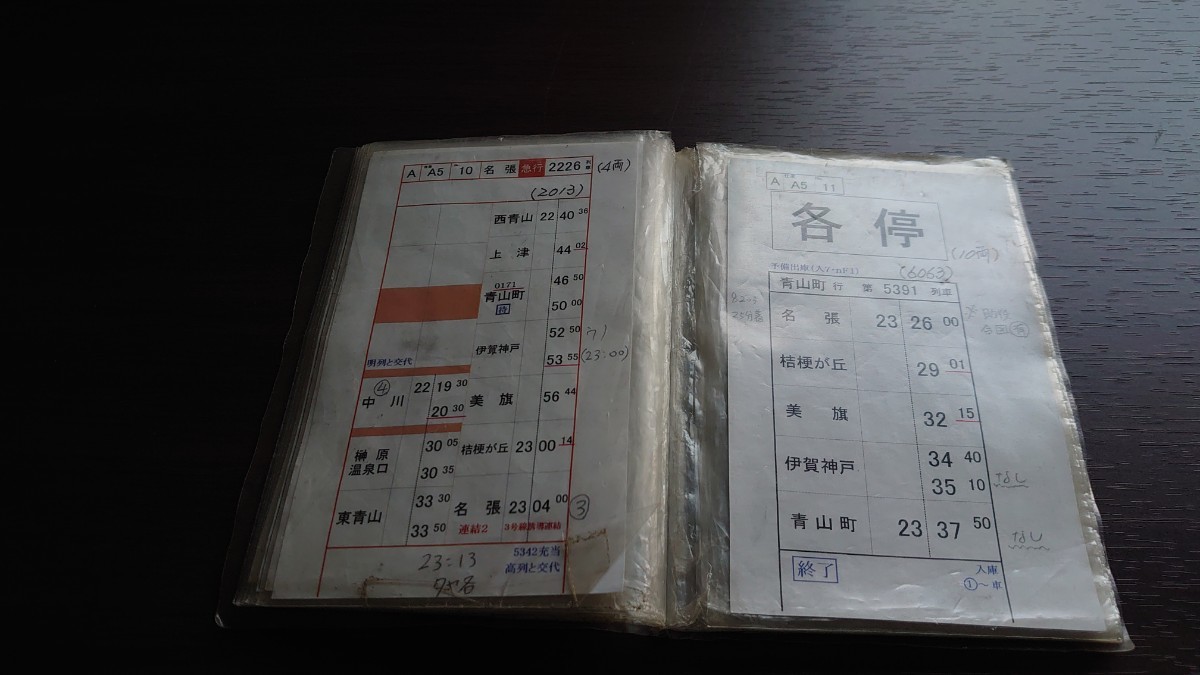 A A5 10 名張 急行 2226 列車 (4両)
(2013)
西青山 22 40 36
上津 44 02
46 50
0171
青山町
待 50 00
52 50
伊賀神戸
53 55 (23:00)
明列と交代
④
中川 22 19 30
20 30
美旗 56 44
榊原温泉口 30 05
30 35
桔梗が丘 23 00 14
東青山 33 30
33 50
名張 23 04 00 ③
連結2 3号線誘導連結
23:13
5342充当
高列と交代
A A5 11
各停
(10両)
(6063)
青山町 行 第 5391 列車
名張 23 26 00
桔梗が丘 29 01
美旗 32 15
伊賀神戸 34 40
35 10 なし
青山町 23 37 50 なし
終了
入庫
①~車